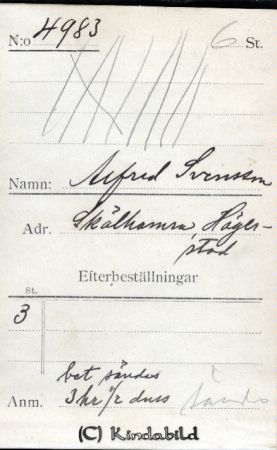 N:o 4983 6 St.
Namn: Alfred Svensson
Adr. Skälhamra Höger-
stad
Efterbeställningar
st.
3
bet sändes
Anm. 3 kr 1/2 duss sändes
(C) Kindabild